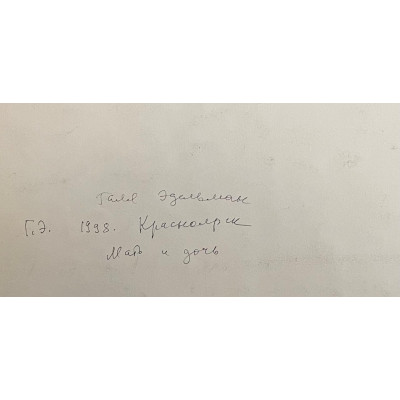 Галя Эдельман
Г.Э. 1998. Красноярск
Мать и дочь